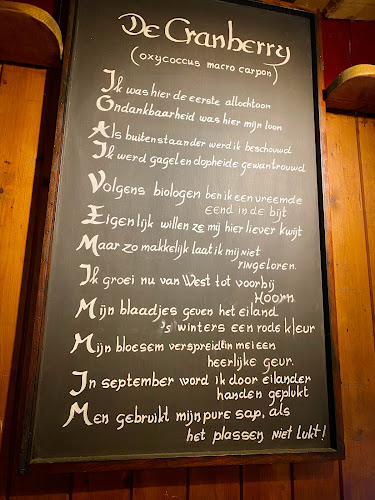 De Cranberry
(oxycoccus macro carpon)
Ik was hier de eerste allochtoon
Ondankbaarheid was hier mijn loon
Als buitenstaander werd ik beschouwd
Ik werd gagel en dopheide gewantrouwd
Volgens biologen ben ik een vreemde
eend in de bijt
Eigenlijk willen ze mij hier liever kwijt
Maar zo makkelijk laat ik mij niet
ringeloren.
Ik groei nu van West tot voorbij
Hoorn
Mijn blaadjes geven het eiland
's winters een rode kleur
Mijn bloesem verspreidt in mei een
heerlijke geur.
In september word ik door eilander
handen geplukt
Men gebruikt mijn pure sap, als
het plassen niet lukt!